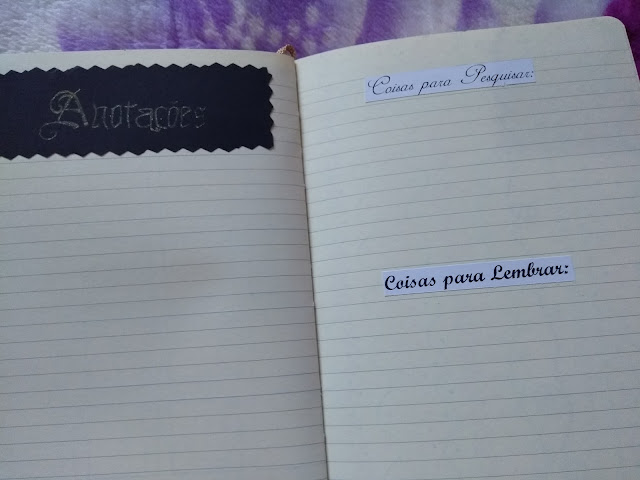 Anotações
Coisas para Pesquisar:
Coisas para Lembrar: